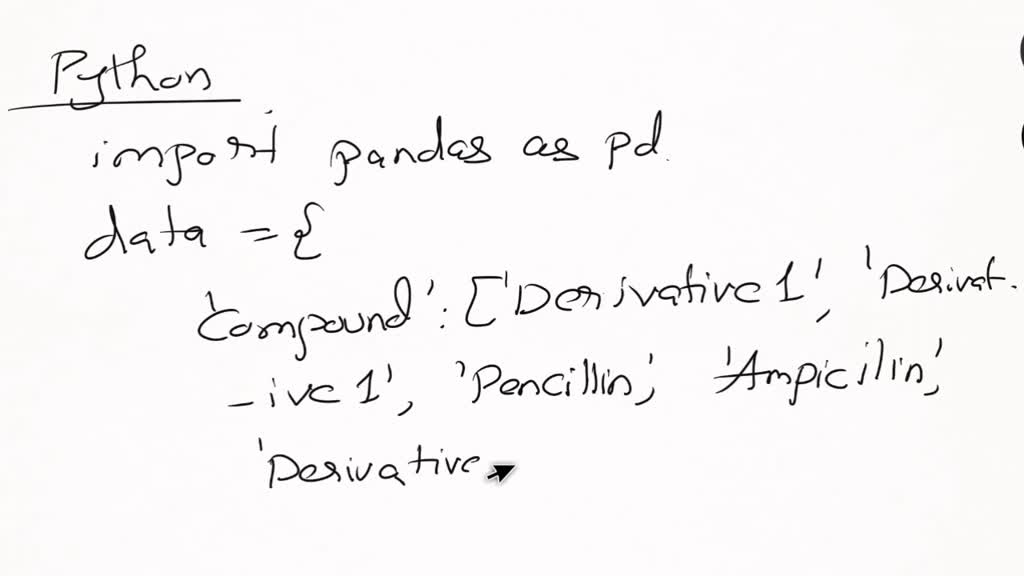 Python
import pandas as pd.
data = {
'Compound' : ['Derivative 1', 'Derivat.
-ive 1', 'Pencillin', 'Ampicilin',
'Derivative